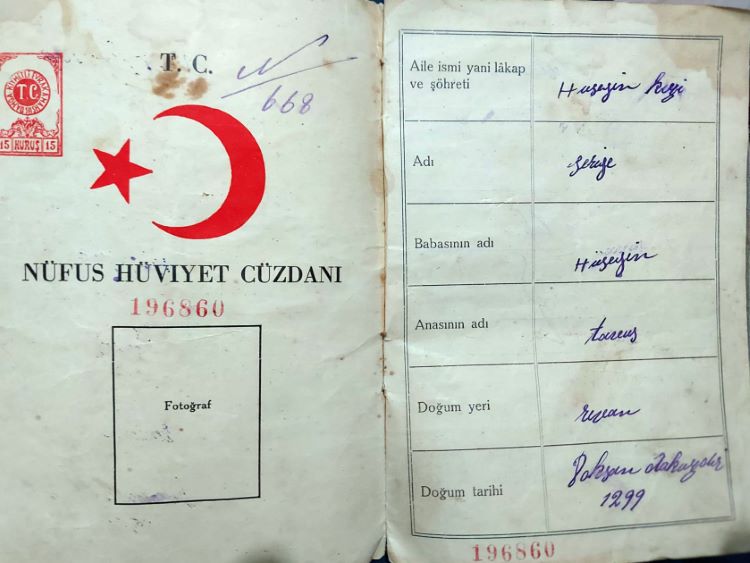 T. C.
N
668
T.C.
15 KURUŞ 15
NÜFUS HÜVİYET CÜZDANI
196860
Fotoğraf
Aile ismi yani lâkap
ve şöhreti
Hüseyin kızı
Adı
Babasının adı
Hüseyin
Anasının adı
Doğum yeri
Revan
Doğum tarihi
1299
196860